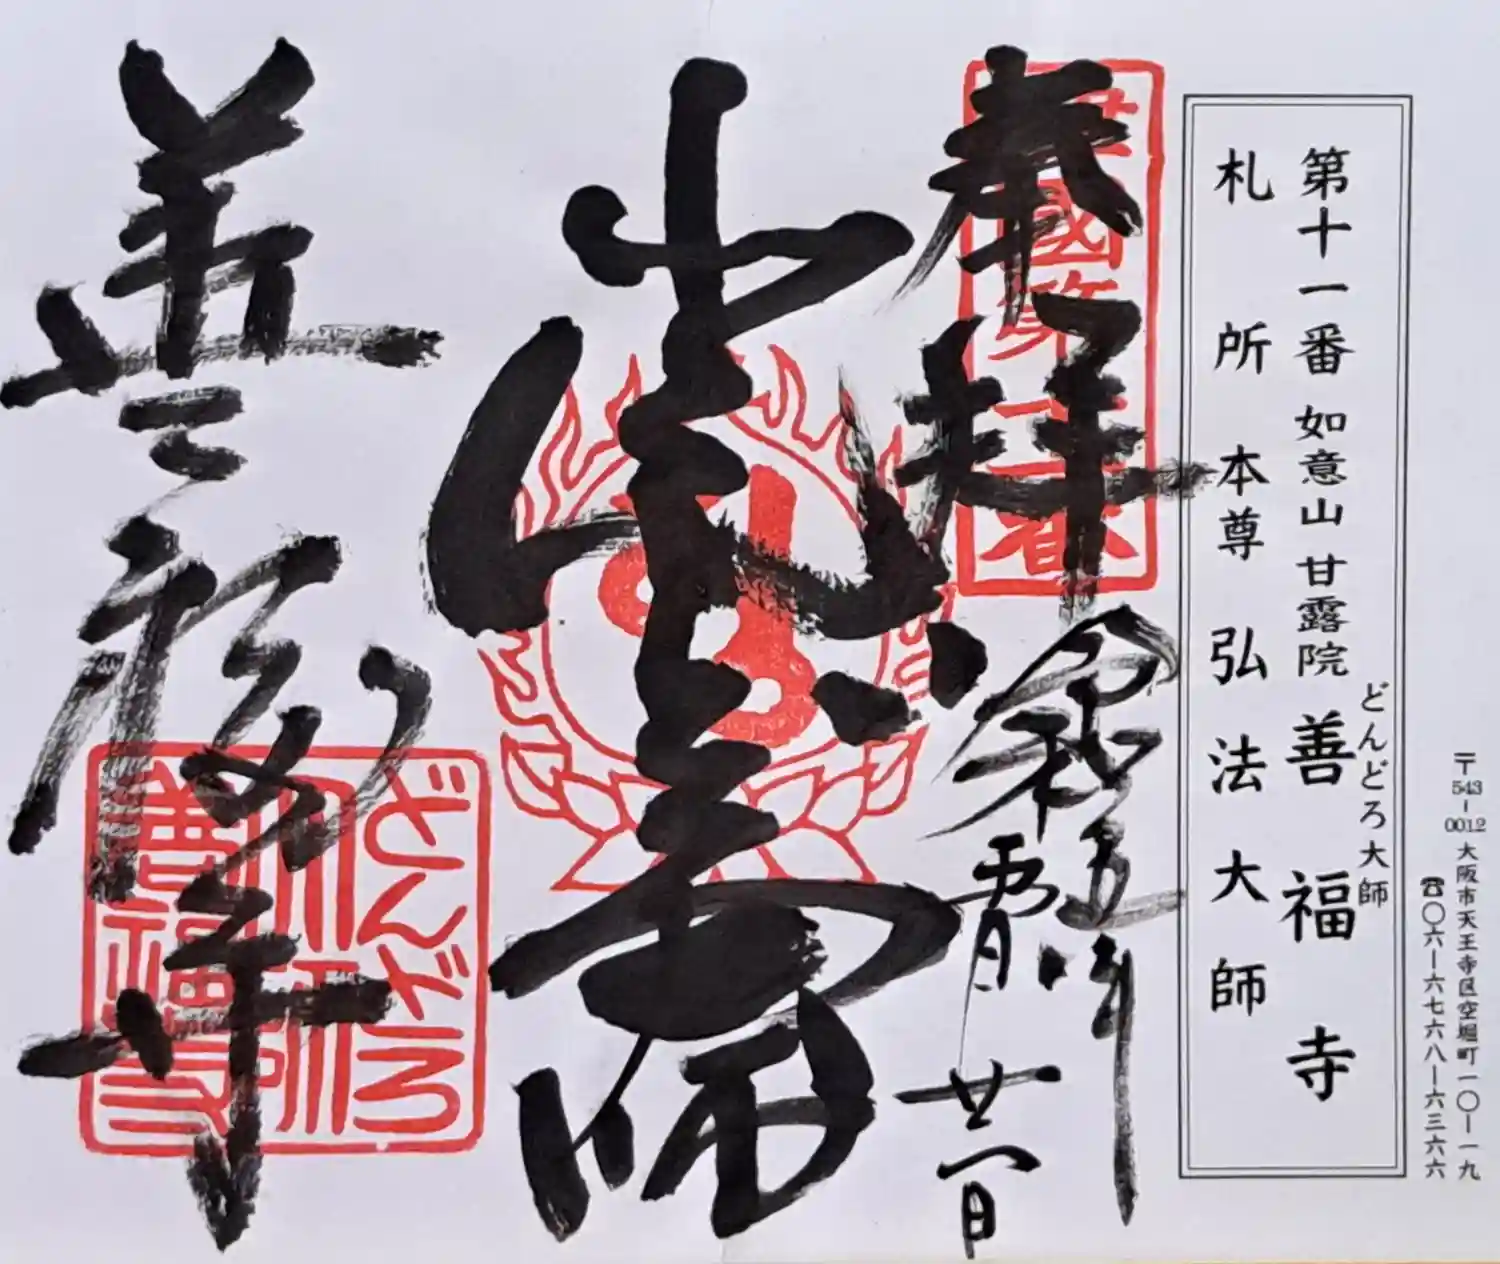 〒543-0012 大阪市天王寺区空堀町一〇ー一九
☎〇六ー六七六八ー六三六六
どんどろ大師
第十一番 如意山 甘露院 善福寺
札所 本尊 弘法大師
奉拝
令和五年
廿一日
善福寺
どんどろ
大師
善福寺